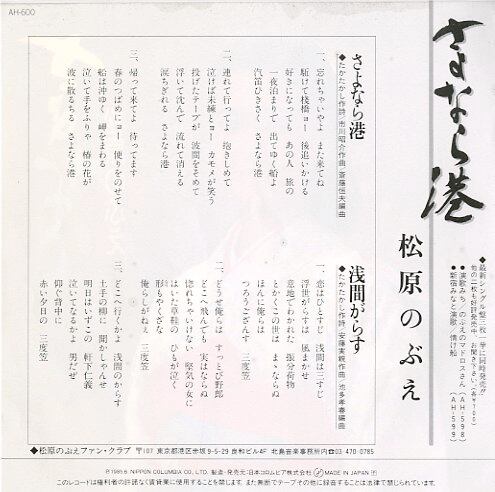 AH-600
さよなら港
松原のぶえ
◆最新シングル盤三枚一挙に同時発売!!
他の二枚も好評発売中 お聞き下さい。(各¥700)
●演歌みち/のぶえのマドロスさん(AH-598)
●新宿みなと演歌/情け船(AH-599)
さよなら港
◆たかたかし作詩/市川昭介作曲/斎藤恒夫編曲
一、忘れちゃいやよ また来てね
駆けて桟橋ヨー 後追いかける
好きになっても あの人 旅の
一夜泊まりで 出てゆく船よ
汽笛ひきさく さよなら港
二、連れて行ってよ 抱きしめて
泣けば未練とヨー カモメが笑う
投げたテープが 波間をそめて
浮いて沈んで 流れて消える
涙ちぎれる さよなら港
三、帰って来てよ 待ってます
春のつばめにヨー 便りをのせて
船は沖ゆく 岬をまわる
泣いて手をふりゃ 椿の花が
波に散るちる さよなら港
浅間がらす
◆たかたかし作詩/安藤実親作曲/池多孝春編曲
一、恋はひとすじ 浅間は三すじ
浮世がらすは 風まかせ
意地でわかれた 振分荷物
とかくこの世は まゝならぬ
ほんに俺らは
つろうござんす 三度笠
二、どうせ俺らは すっとび野郎
どこへ飛んでも 実はならぬ
惚れちゃいけない 堅気の女に
はいた草鞋の ひもが泣く
形もやくざな
俺らしがねえ 三度笠
三、どこへ行くかよ 浅間のからす
土手の柳に 聞かしゃんせ
明日はいずこの 軒下仁義
泣いてなるかよ 男だぜ
仰ぐ背中に
赤い夕日の 三度笠
◆松原のぶえファン・クラブ 〒107 東京都港区赤坂9-5-29 良和ビル4F 北島音楽事務所内☎03 470-0785
Ⓟ1985.6 NIPPON COLUMBIA CO., LTD. 製造・発売元/日本コロムビア株式会社 MADE IN JAPAN
このレコードは権利者の許諾なく賃貸業に使用することを禁じます。また無断でテープその他に録音することは法律で禁じられています。